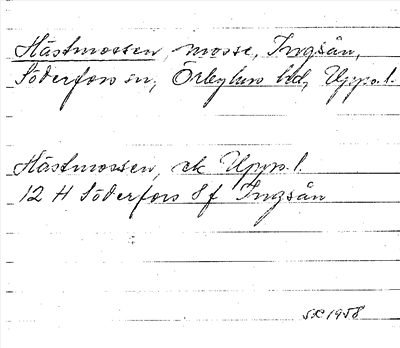 Hästmossen, mosse, Ingsån,
Söderfors sn, Örbyhus hd, Upps.l.
Hästmossen, ek Upps.l.
12 H Söderfors 8f Ingsån
1958